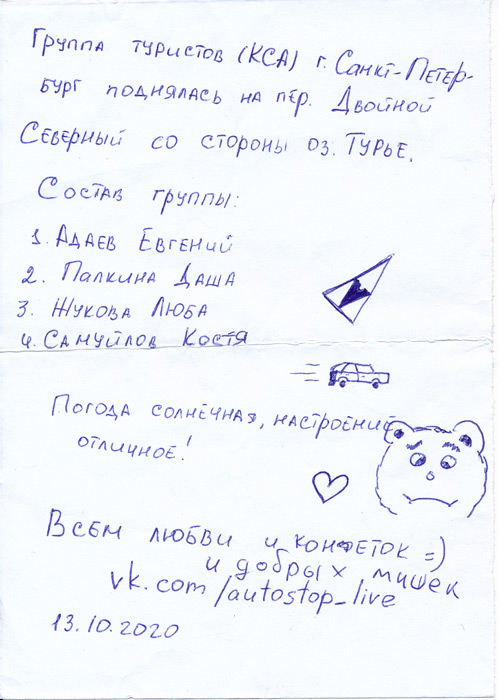 Группа туристов (КСА) г. Санкт-Петер-
бург поднялась на пер. Двойной
Северный со стороны оз. Турье.
Состав группы:
1. Адаев Евгений
2. Палкина Даша
3. Жукова Люба
4. Самуйлов Костя
Погода солнечная, настроение
отличное!
Всем любви и конфеток =)
и добрых мишек
vk.com/autostop_live
13.10.2020